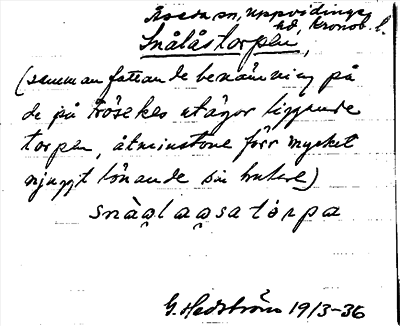 Åseda sn, Uppvidinge
hd, Kronob. l.
Snålåstorpen,
(sammanfattande benämning på
de på Fröseke utägor liggande
torpen, åtminstone förr mycket
njuggt lönande sin brukare)
snàa̧laa̧satórpa
G. Hedström 19/3-36